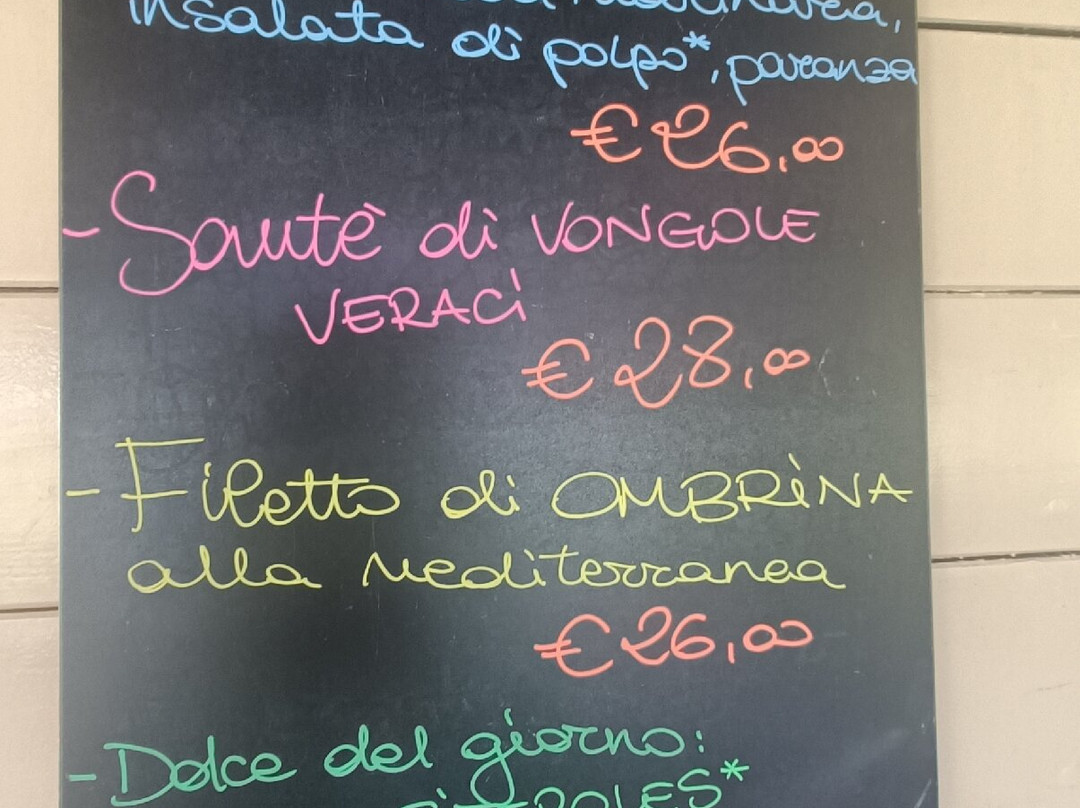 insalata di polpo*, paranza
€ 26,00
- Sautè di VONGOLE
VERACi
€ 28,00
- Filetto di OMBRÌNA
alla Mediterranea
€ 26,00
- Dolce del giorno: